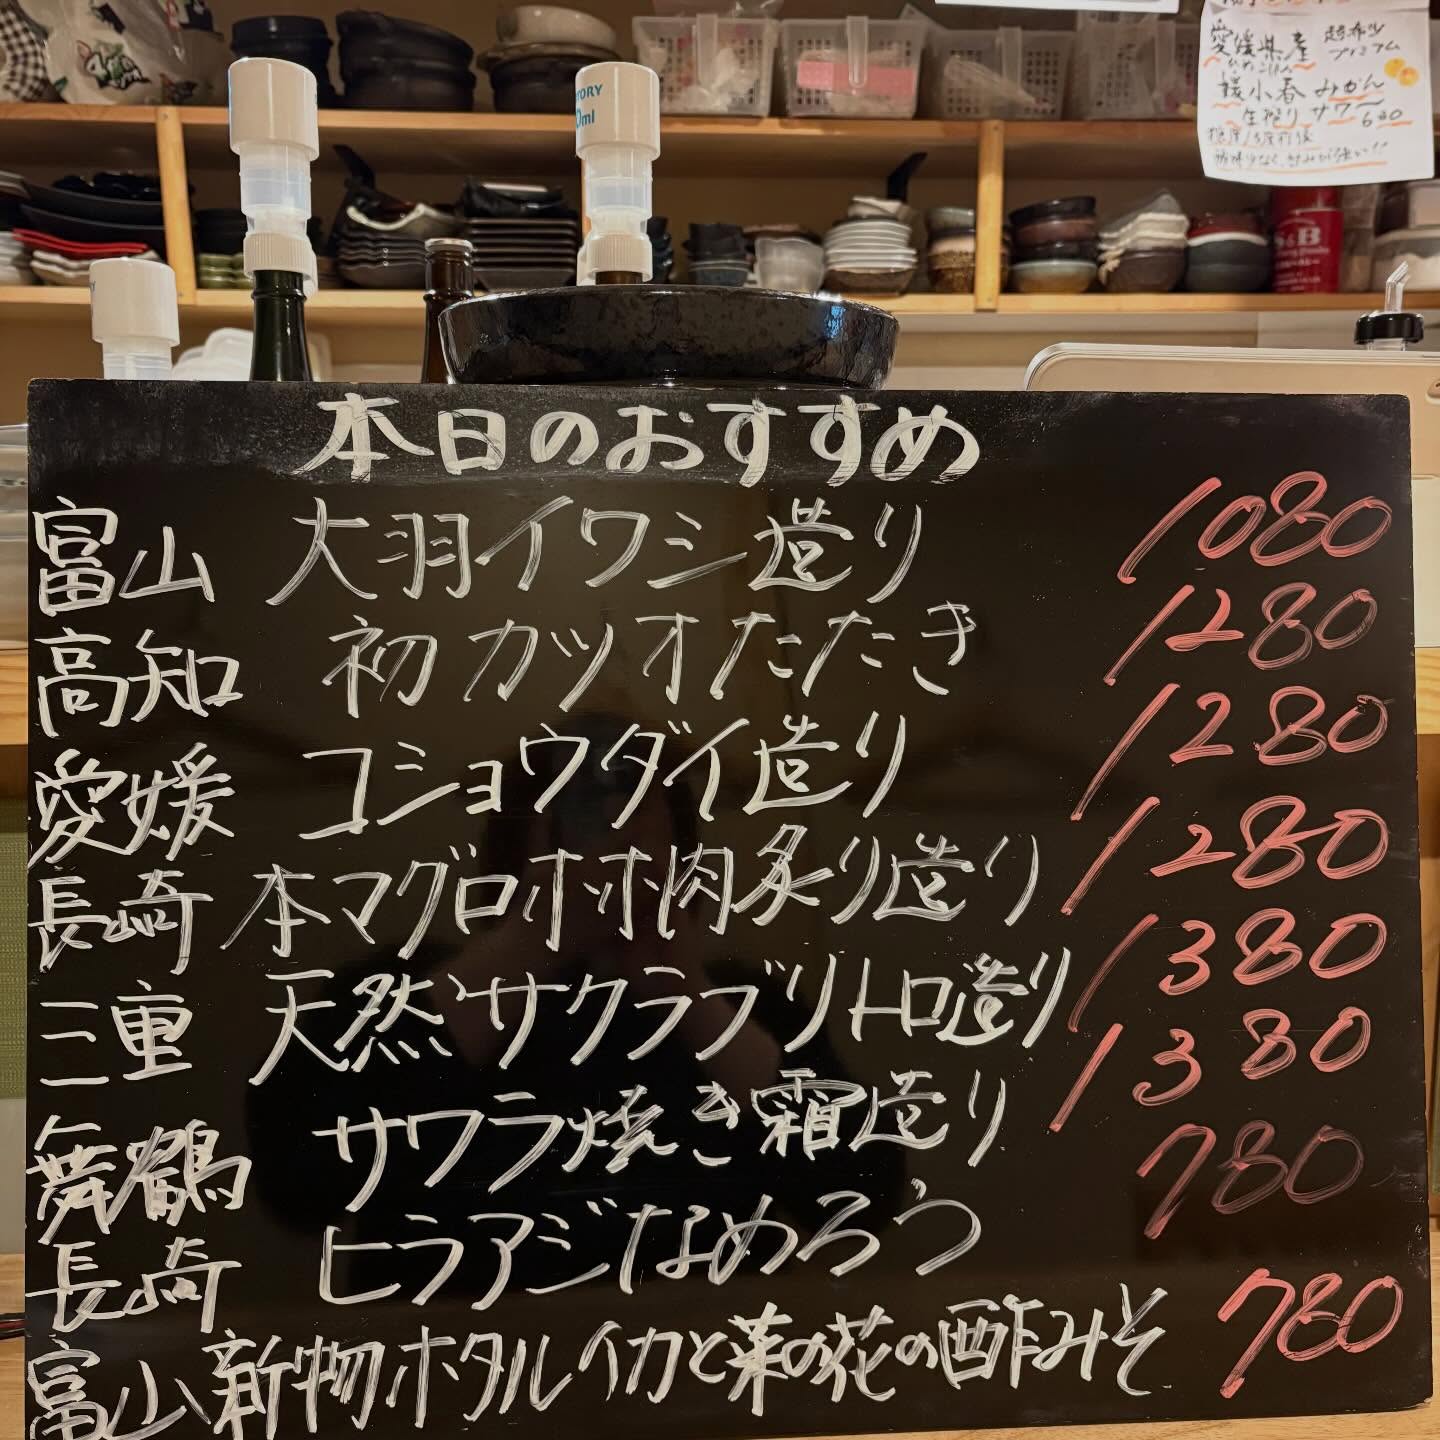 愛媛県産 超希少
プレミアム
媛小春みかん
生搾りサワー 630
糖度13度前後
TORY
0ml
S&B
本日のおすすめ
富山 大羽イワシ造り 1080
高知 初カツオたたき 1280
愛媛 コショウダイ造り 1280
長崎 本マグロホホ肉炙り造り 1280
三重 天然サクラブリトロ造り 1380
舞鶴 サワラ焼き霜造り 1380
長崎 ヒラアジなめろう 780
富山 新物ホタルイカと菜の花の酢みそ 780